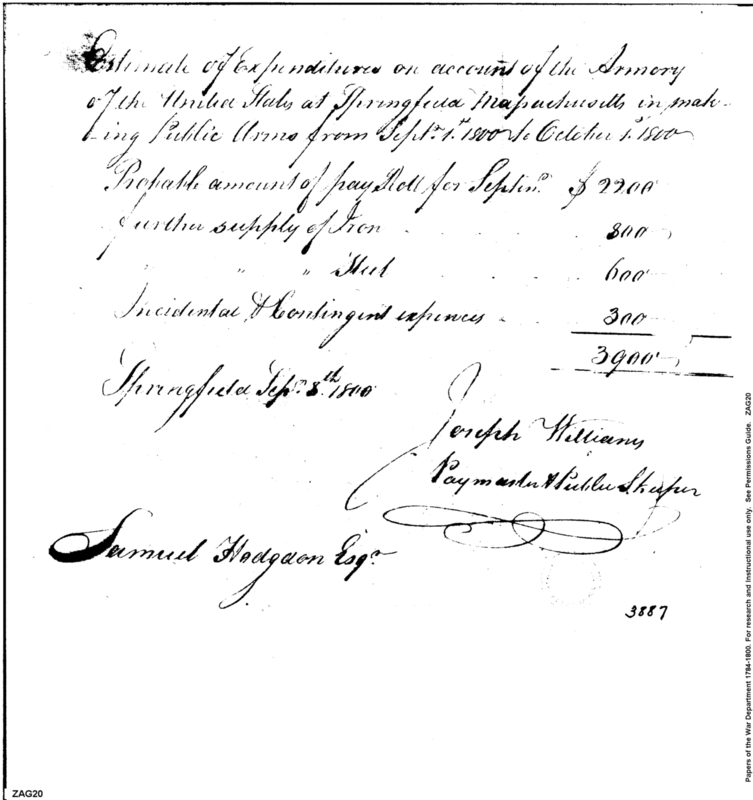 Estimate of Expenditures on account of the Armory
of the United States at Springfield Massachusetts in mak-
-ing Public Arms from Sept.r 1.st 1800 to October 1.st 1800
Probable amount of pay Roll for Septem.r $ 2200
further supply of Iron . . . . 800
" " " Steel . . . . 600
Incidental & Contingent expences . . 300
3900
Springfield Sep.r 8.th 1800
Joseph Williams
Paymaster & Public S. keeper
Samuel Hodgdon Esq.r
3887
ZAG20
Papers of the War Department 1784-1800. For research and instructional use only. See Permissions Guide. ZAG20